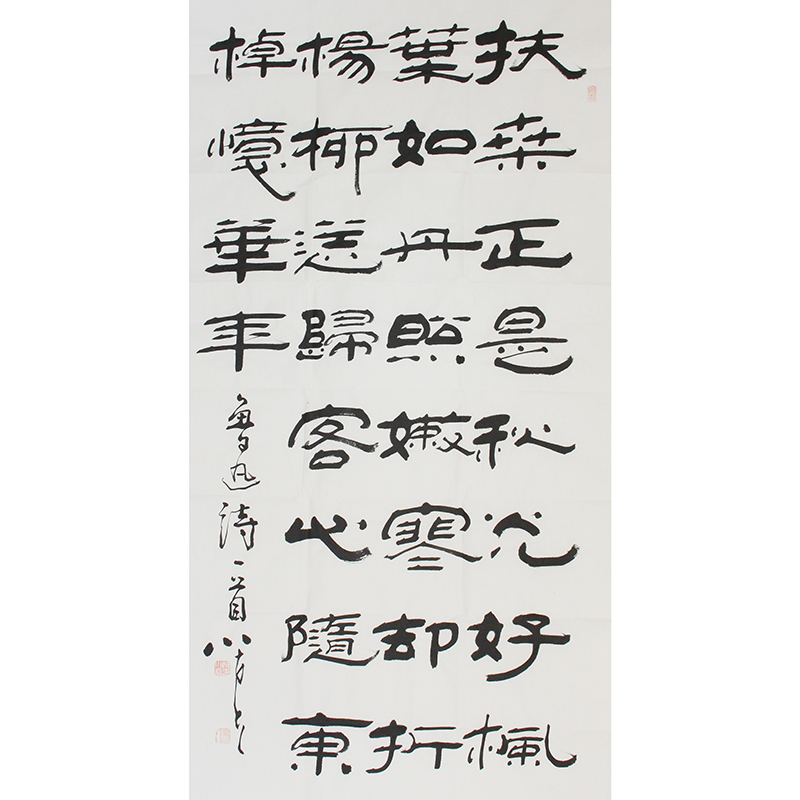 扶桒正是秋光好楓
葉如丹照嫩寒却折
楊柳送歸客心隨東
棹憶華年
魯迅詩一首